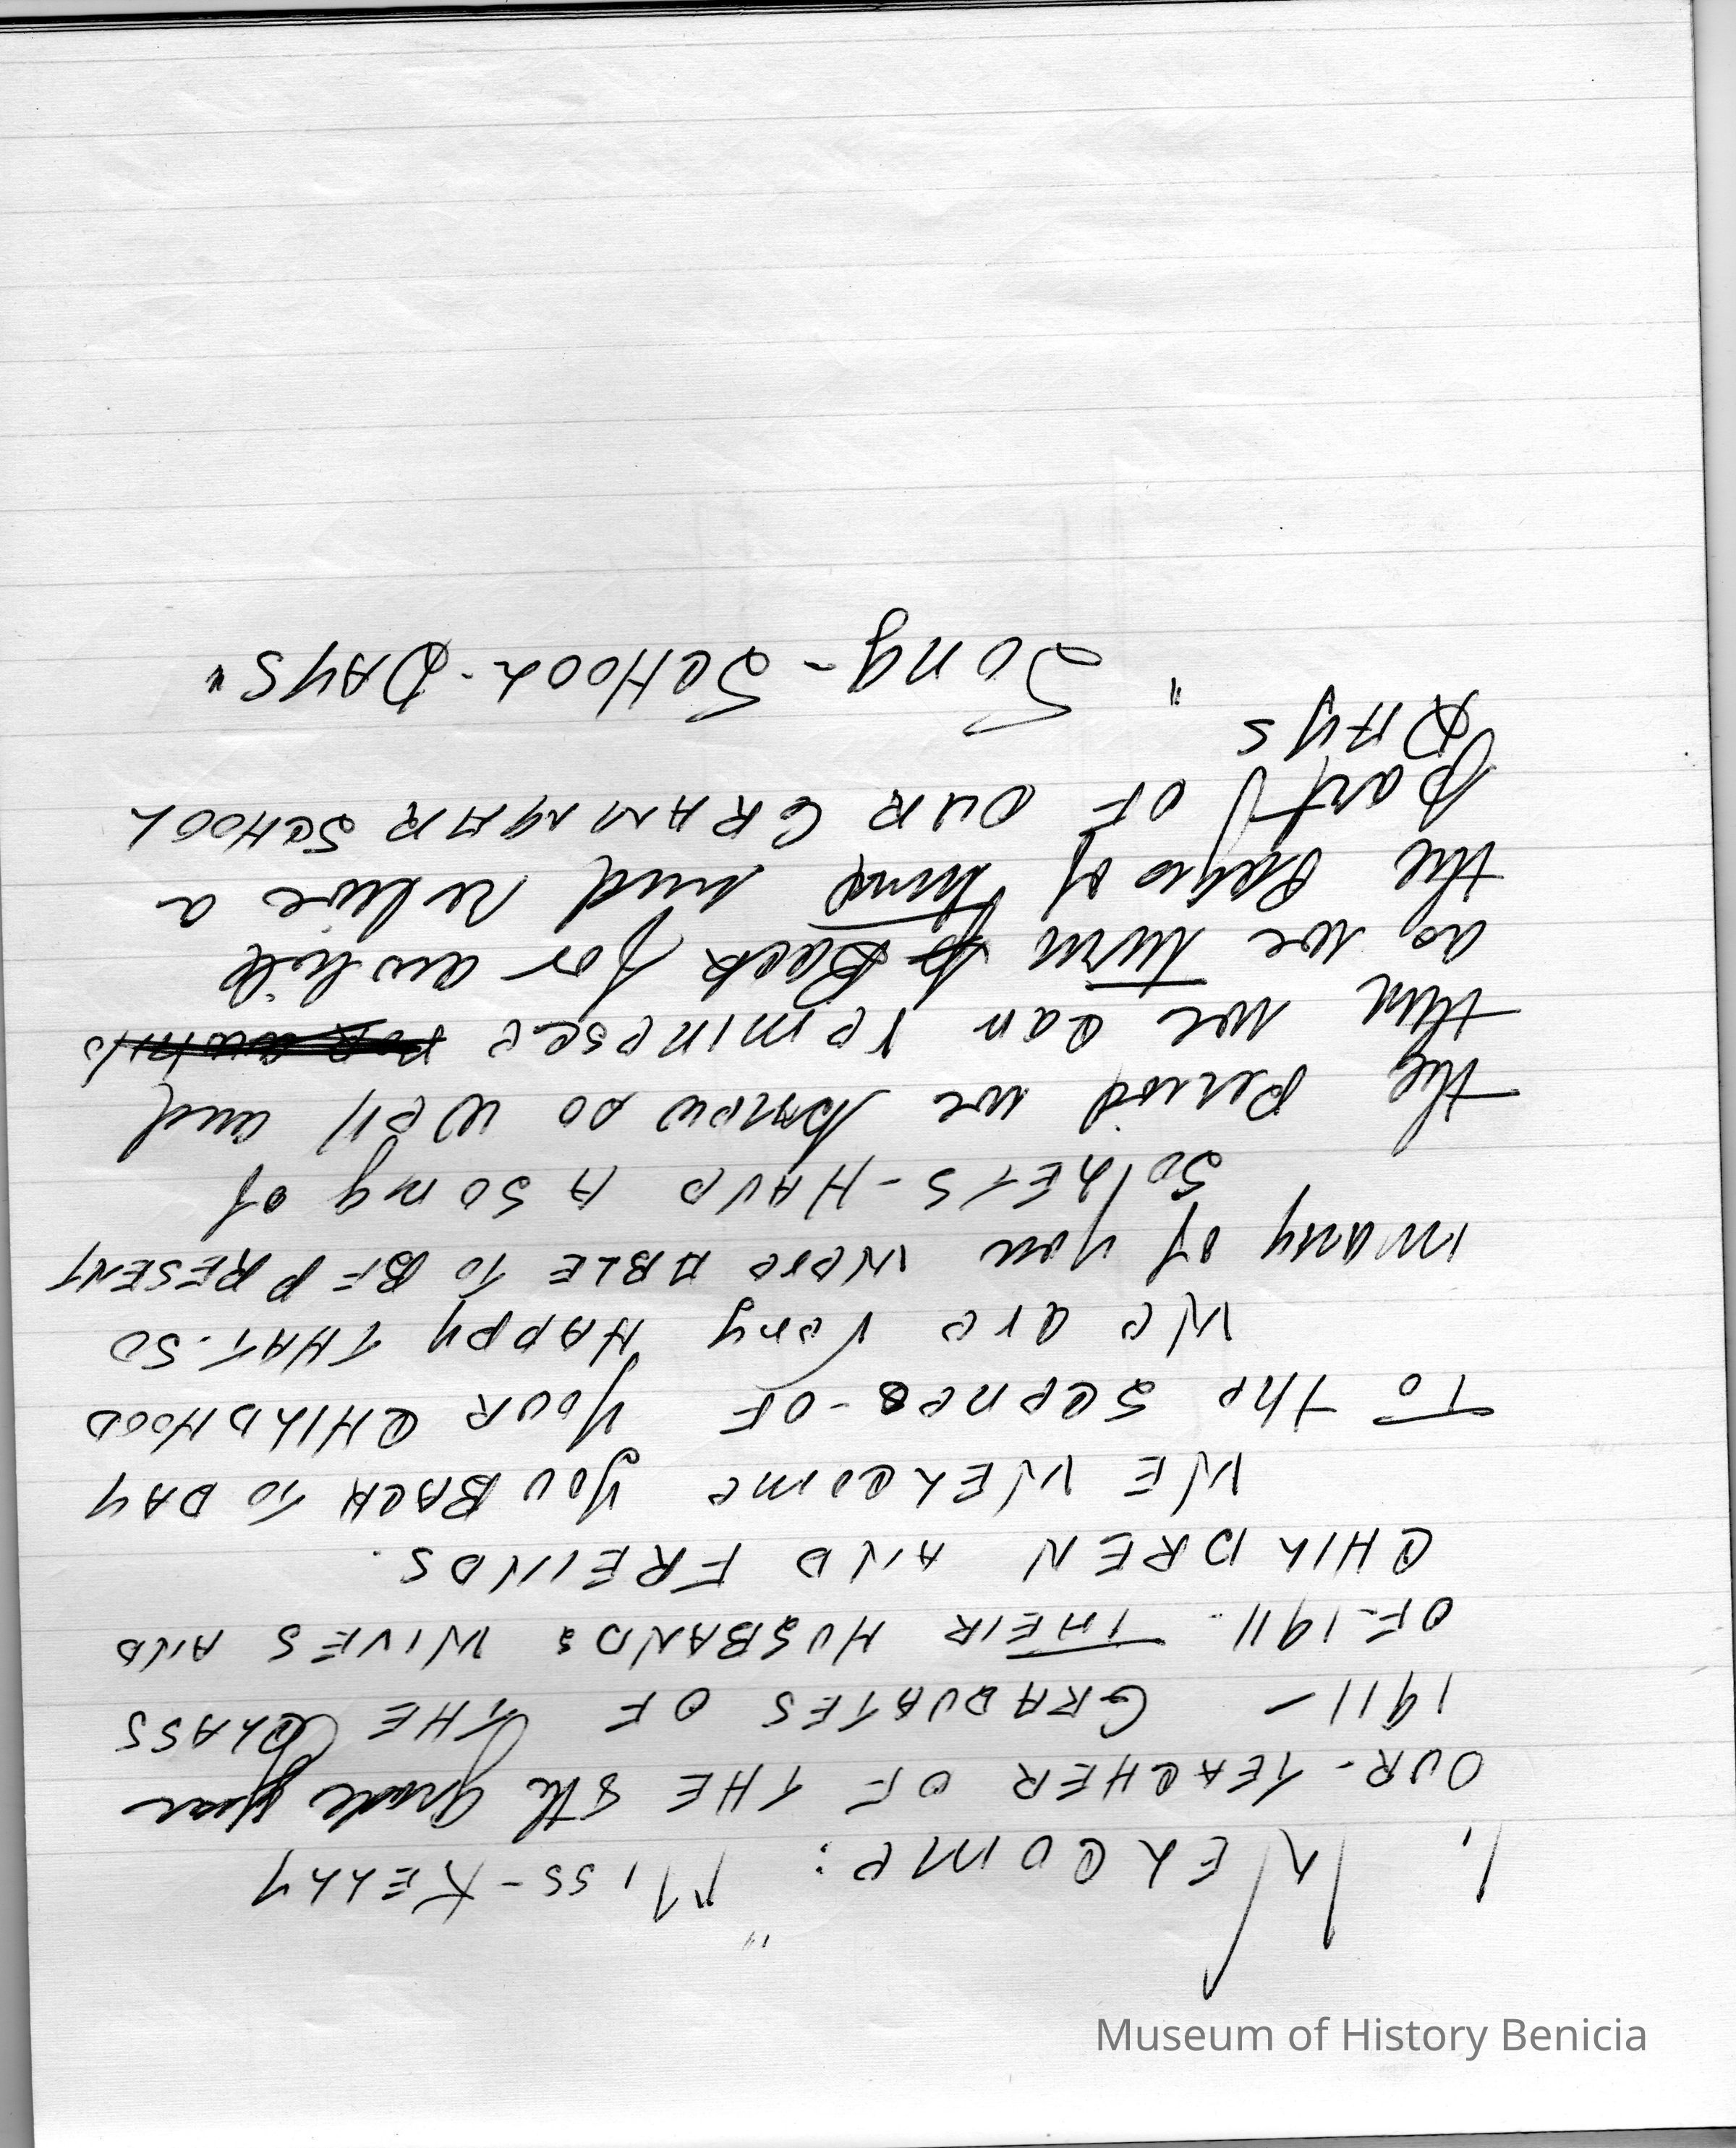 1. WELCOME: "MISS-KELLY
OUR-TEACHER OF THE 8th grade year
1911 - GRADUATES OF THE CLASS
OF-1911. THEIR HUSBANDS WIVES AND
CHILDREN AND FREINDS.
WE WELCOME YOU BACK TO DAY
TO THE SCENES-OF YOUR CHILDHOOD
We are very HAPPY THAT-SO
many of you were ABLE TO BE PRESENT
SO/LETS-HAVE A SONG of
the Period we know so well and
then we can reminesce FOR awhile
as we turn Back for awhile
the Pages of Time and relive a
part OF OUR GRAMMAR SCHOOL
DAYS
" Song-SCHOOL-DAYS"
Museum of History Benicia